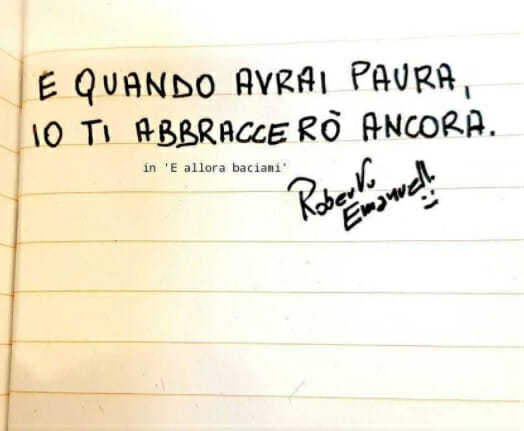 E QUANDO AVRAI PAURA,
IO TI ABBRACCERÒ ANCORA.
in 'E allora baciami'
Roberto
Emanuelli